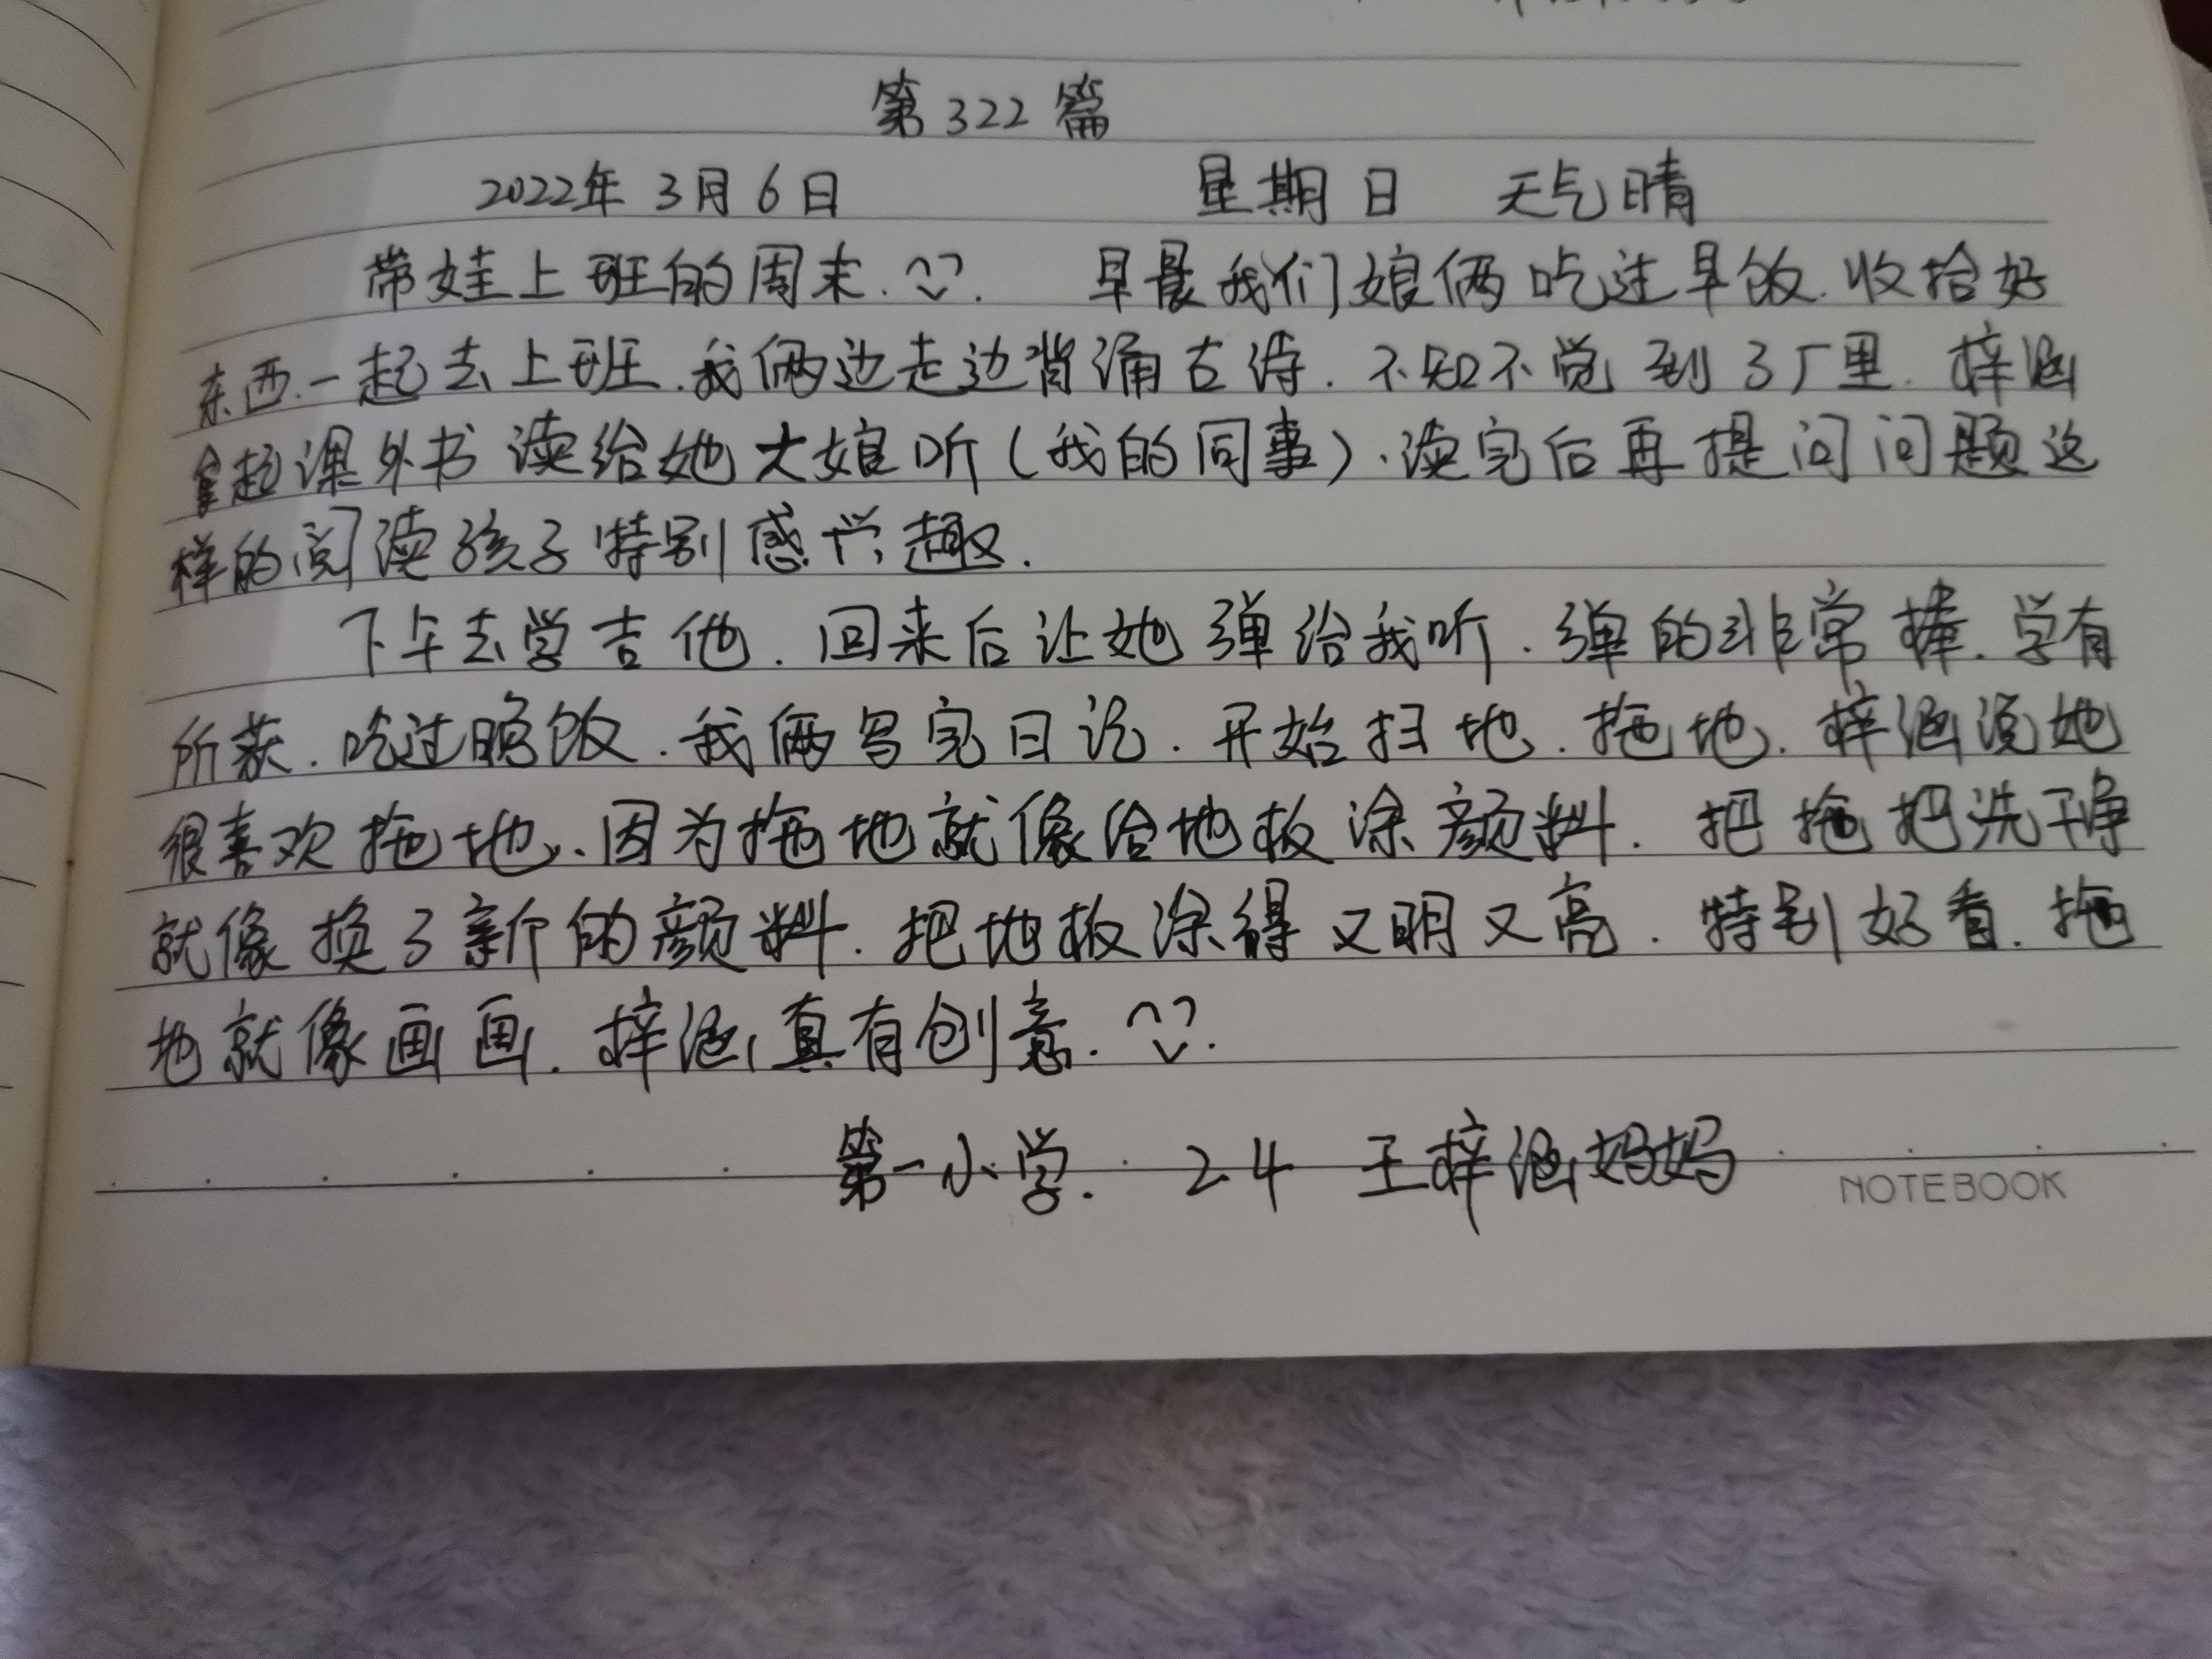 第322篇
2022年 3月6日 星期日 天气晴
带娃上班的周末. 早晨我们娘俩吃过早饭.收拾好
东西.一起去上班.我俩边走边背诵古诗.不知不觉到了厂里.梓涵
拿起课外书读给她大娘听(我的同事).读完后再提问问题这
样的阅读孩子特别感兴趣.
下午去学吉他.回来后让她弹给我听.弹的非常棒.学有
所获.吃过晚饭.我俩写完日记.开始扫地.拖地.梓涵说她
很喜欢拖地.因为拖地就像给地板涂颜料.把拖把洗干净
就像换了新的颜料.把地板涂得又明又亮.特别好看.拖
地就像画画.梓涵真有创意.
第一小学. 2.4 王梓涵妈妈
NOTEBOOK